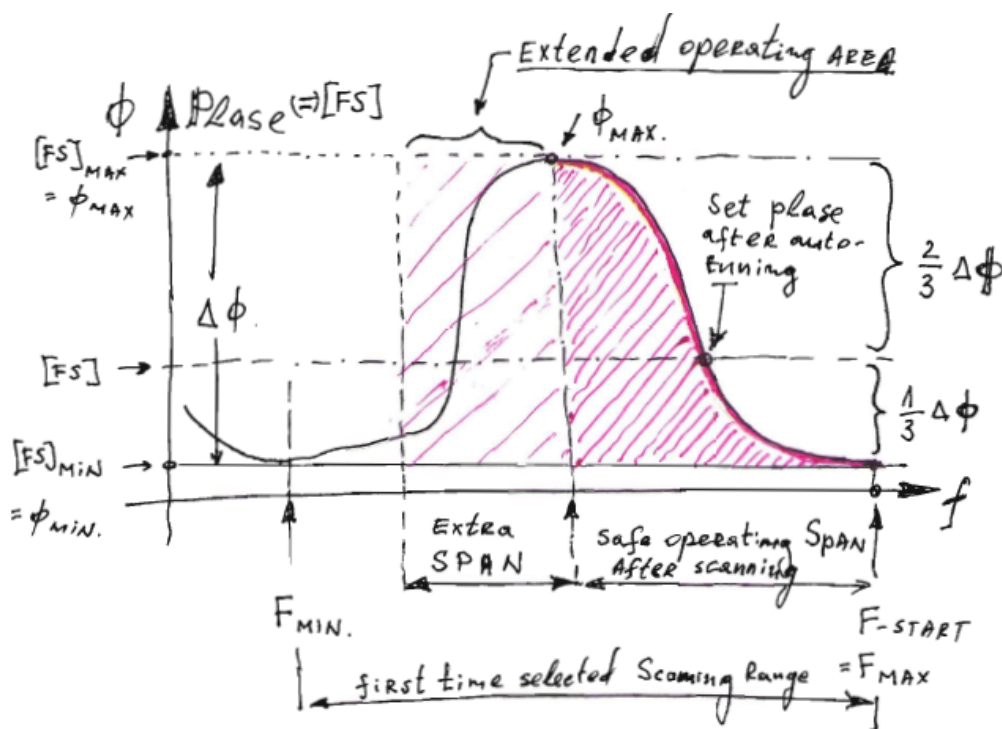 Extended operating AREA
ϕ Plase (=) [FS]
ϕ MAX.
[FS] MAX
= ϕ MAX
Set plase
after auto-
tunning
2/3 Δϕ
Δϕ.
[FS]
1/3 Δϕ
[FS] MIN
= ϕ MIN.
f
Extra
SPAN
Safe operating SPAN
After scanning
F MIN.
F-START
= F MAX
first time selected Scanning Range